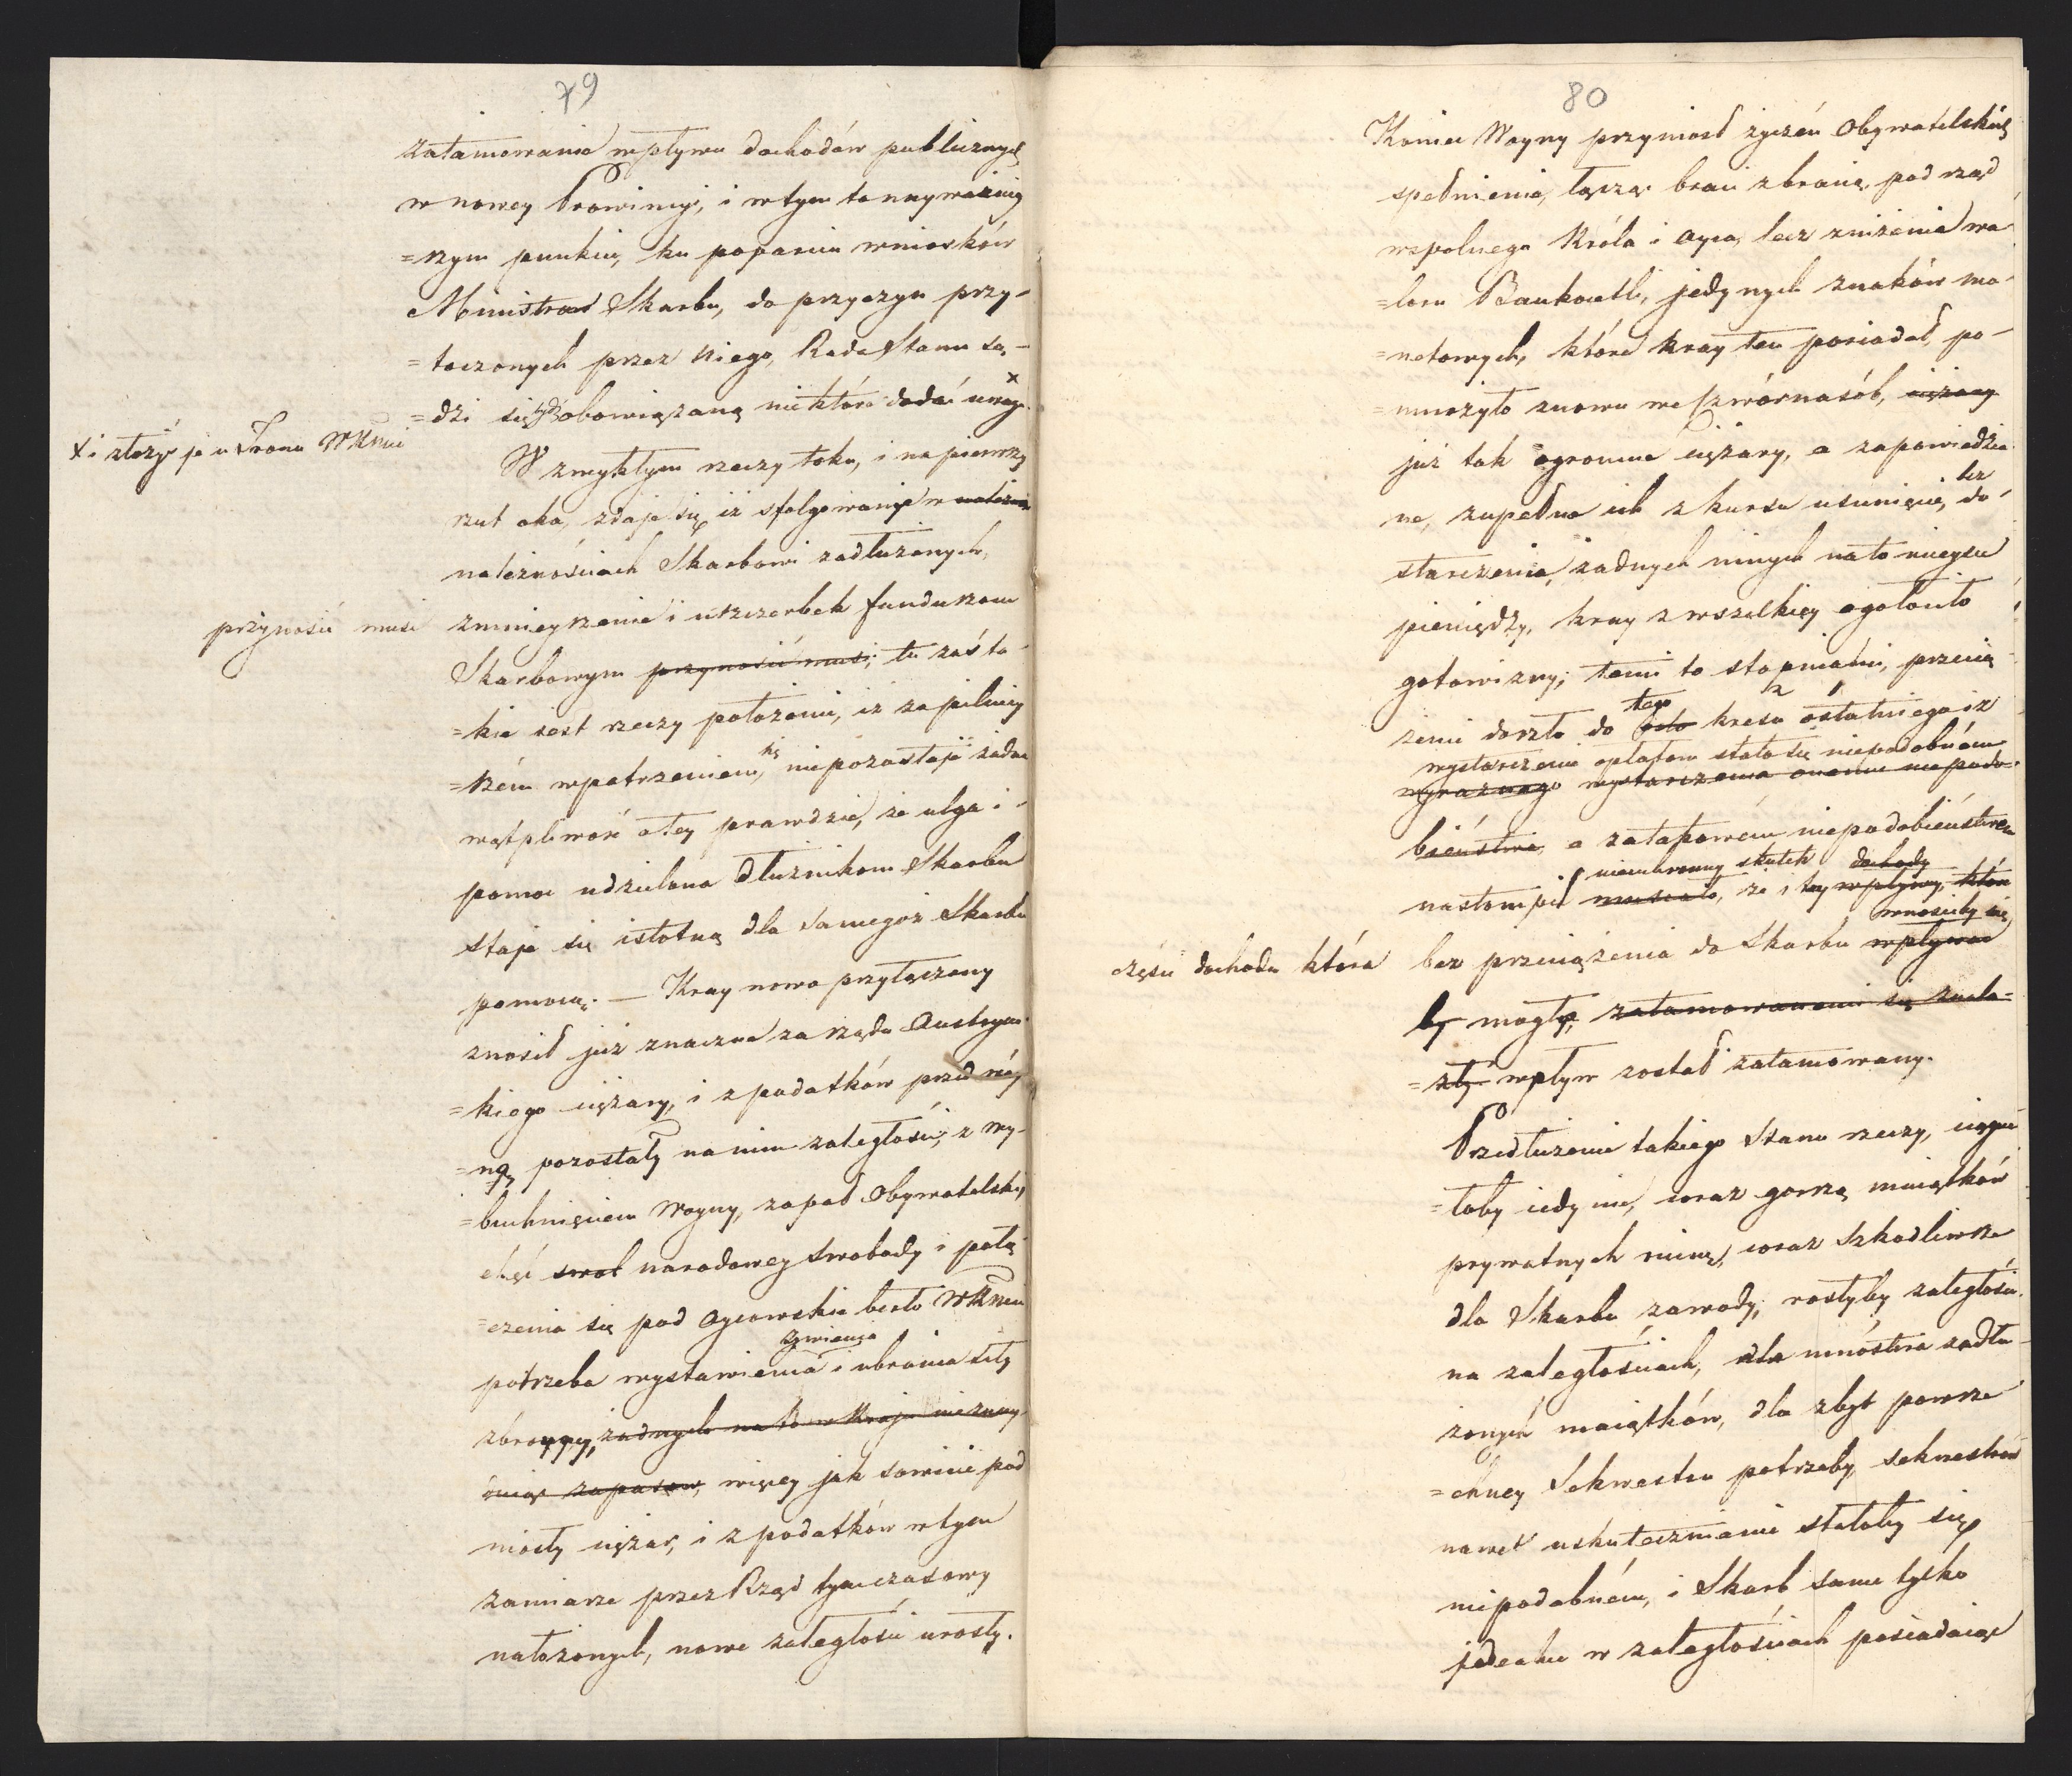 79
zatamowania wpływu dochodów publicznych
w nowey Prowincyi, i w tym to naywainiey
=szym punkcie, ku poparciu wniosków
Ministra Skarbu, do przyczyn przy-
=toczonych przez niego, Rada Stanu są-
=dzi się bydź obowiązaną niektóre dodać uwagi x
x i złożyć je u Tronu WKMci
W zwykłym rzeczy toku, i na pierwszy
rzut oka, zdaje się iż sfolgowanie w
należnościach Skarbowi zadłużonych,
przynosić musi zmnieyszenie i uszczerbek funduszom
Skarbowym przynosić musi; tu zaś ta-
=kie iest rzeczy położenie, iż za pilniey
=szém wpatrzeniem, się niepozostaje żadna
wątpliwość o tey prawdzie, że ulga i
pomoc udzielona dłużnikom Skarbu
staje się istotną dla samegoż Skarbu
pomocą. — Kray nowo przyłączony
znosił już znaczne za rządu Austryac
=kiego ciężary, i z podatków przed woy
=ną pozostały na nim zaległości; z wy-
=buchnięciem Woyny, zapał Obywatelski,
chęć swob narodowey swobody i połą
=czenia się pod Oycowskie berło WKMci
potrzeba wystawienia żywienia i ubrania siły
zbroyney, żadnych na to w Kraju nie znay-
duiąc zapasów, więcey jak sowicie pod
niosły ciężar, i z podatków w tym
zamiarze przez Rząd tymczasowy
nałożonych, nowe zaległości urosły.
80
Koniec Woyny przyniosł życzeń Obywatelskich
spełnienie, łącząc braci z bracią, pod rząd
wspolnego Króla i Oyca, lecz zniżenie wa
=loru Bankocetli, jedynych znaków mo-
=netowych, które kray ten posiadał, po-
=mnożyło znowu we czwórnasób, ciężary
już tak ogromne ciężary, a zapowiedzia
ne, zupełne ich z kursu usunięcie, bez do-
starczenia, żadnych innych na to mieysce
pieniędzy, kray z wszelkiey ogołociło
gotowizny; temi to stopniami, przecią
żenie doszło do tego kresu ostatniego iż
wystarczenie opłatom stało się niepodobném
wyraznego wystarczenia onemu niepodo-
bieństwa, a zatapowem niepodobieństwem
nastompił niechronny skutek musiało, że i tey dochody wpływy, które
częśc dochodu która bez przeciążenia do Skarbu wnosićby się wpływać
by mogły, zatamowanemi się znala-
=zły wpływ został zatamowany.
Przedłużenie takiego Stanu rzeczy, ciągnę
=łoby iedynie, coraz gorszą maiątków
prywatnych ruinę, coraz szkodliwsze
dla Skarbu zawody; rosłyby zaległości
na zaległościach, dla mnóstwa zadłu-
żonych maiątków, dla zbyt powsze
=chney Sekwestru potrzeby, sekwestrów
nawet uskutecznianie stałoby się
niepodobném, i Skarb same tylko
jedeaku w zaległościach posiadaiąc